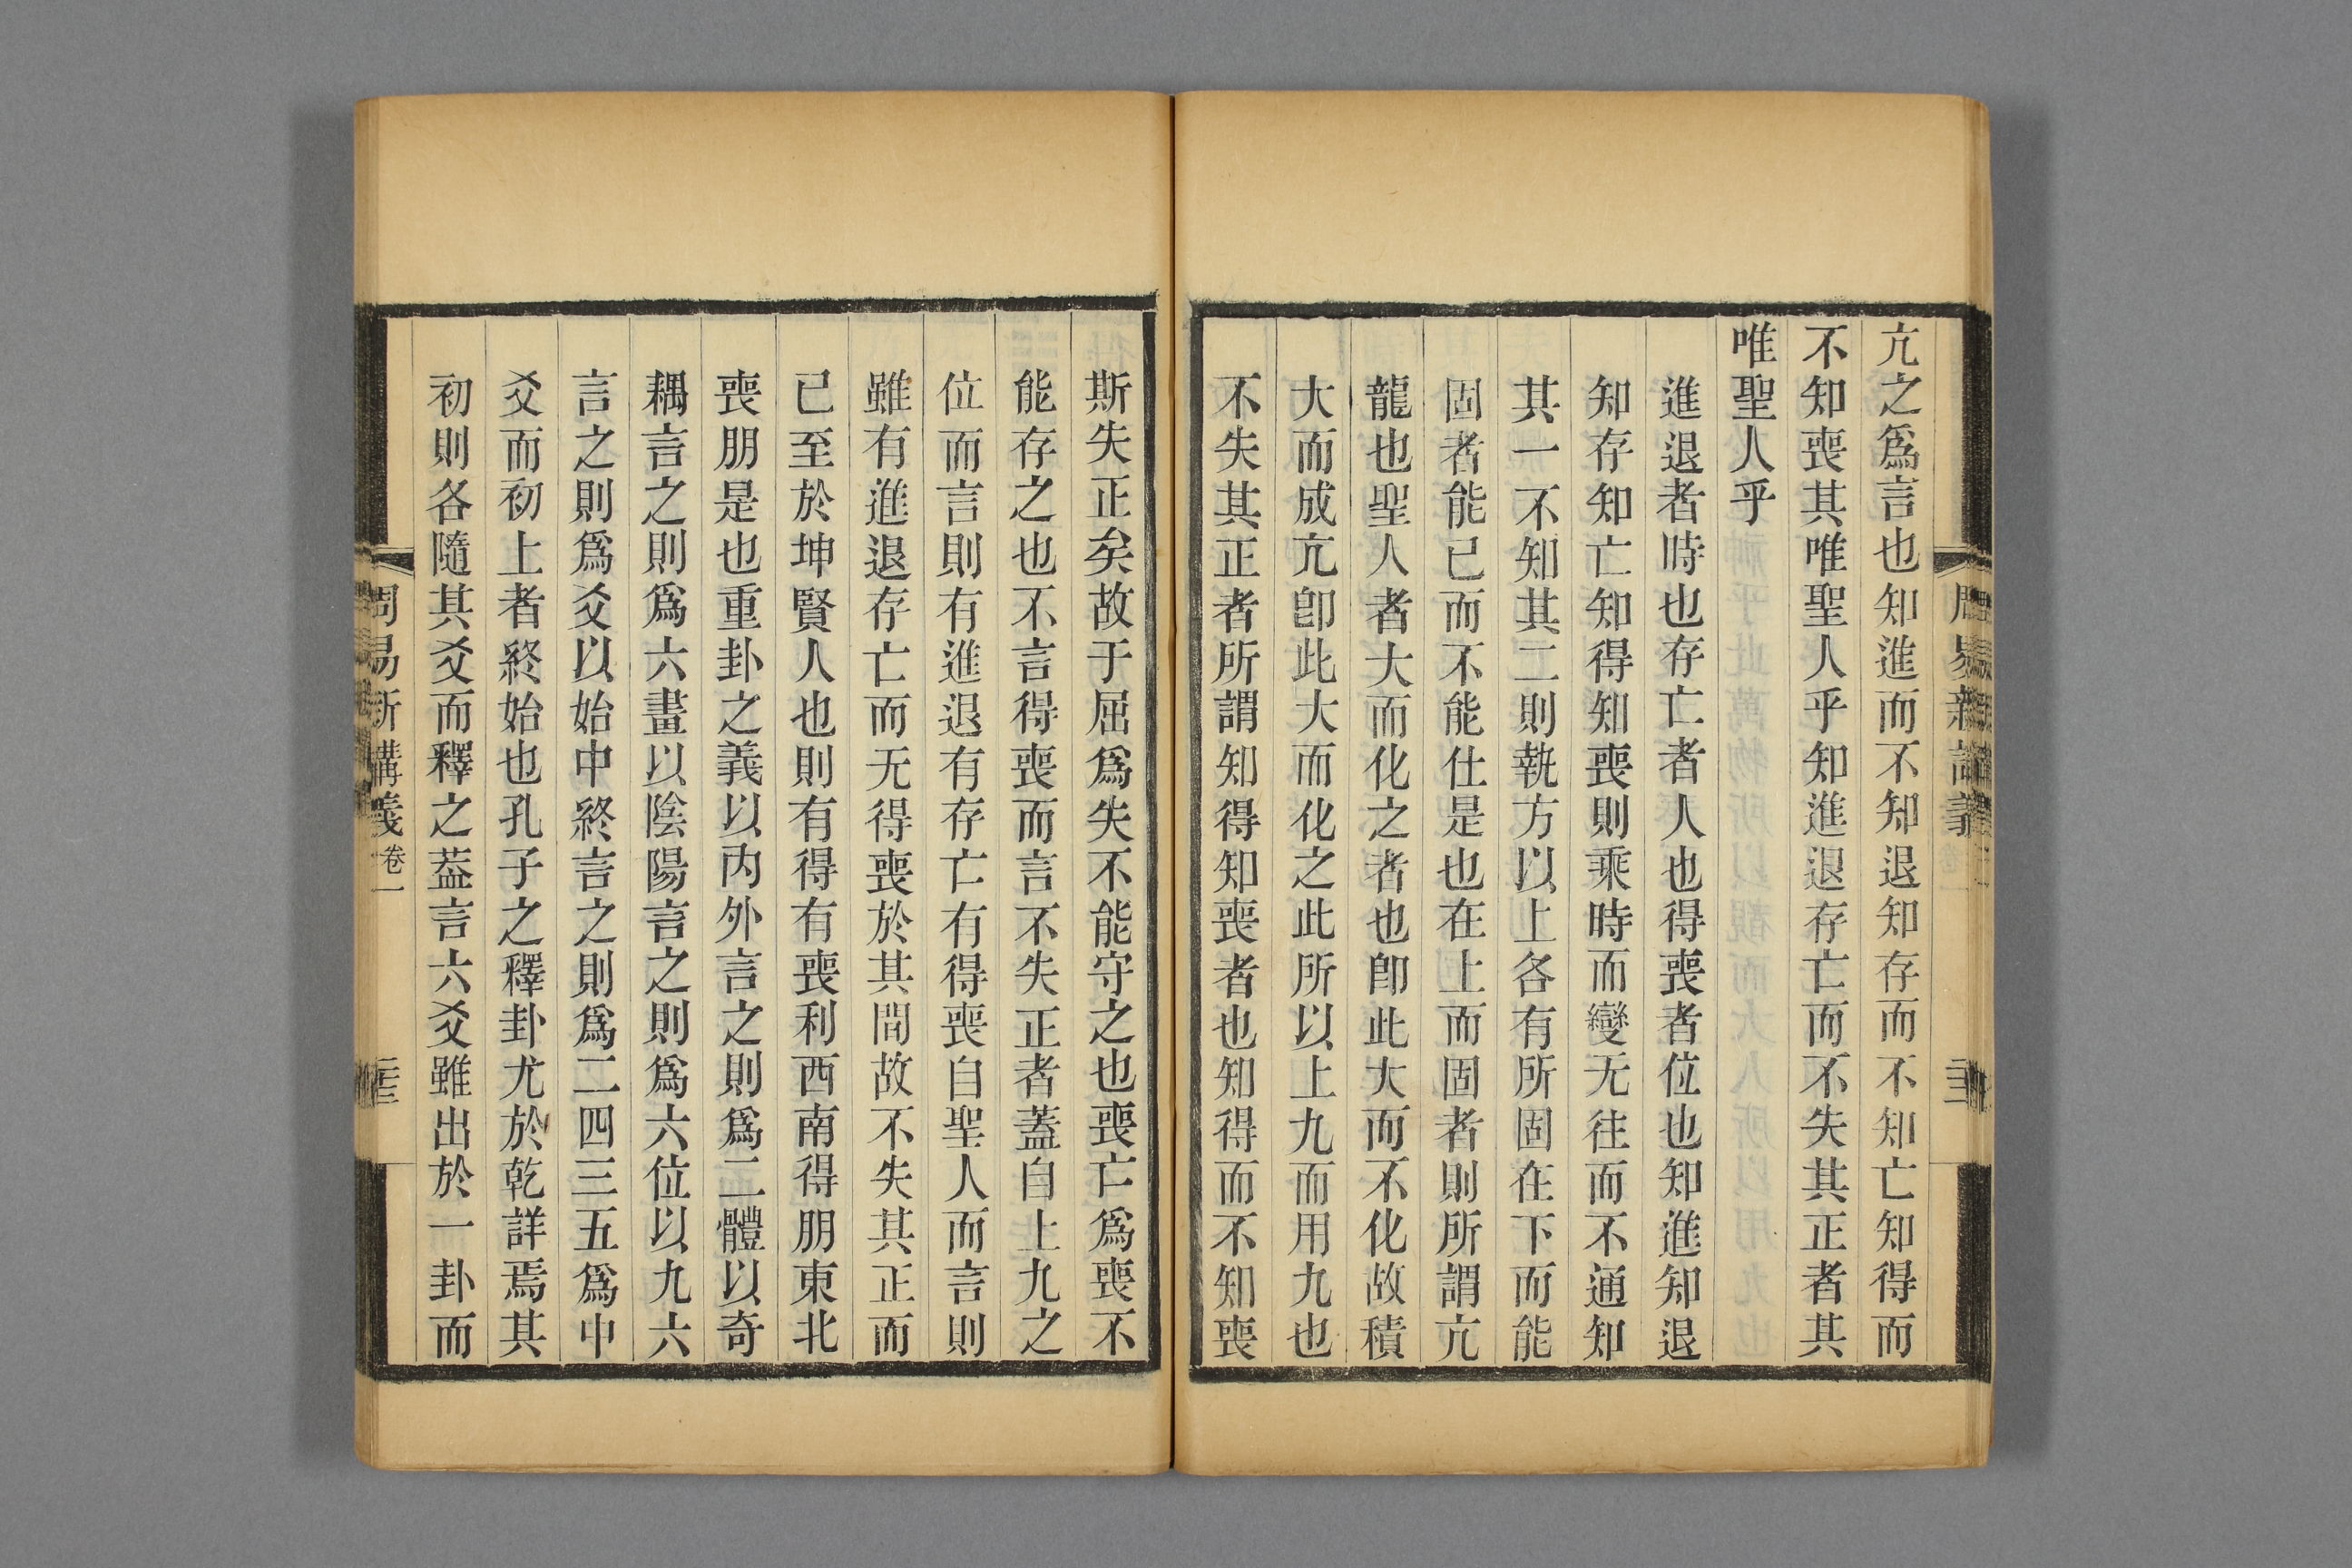 亢之爲言也知進而不知退知存而不知亡知得而
不知喪其唯聖人乎知進退存亡而不失其正者其
唯聖人乎
進退者時也存亡者人也得喪者位也知進知退
知存知亡知得知喪則乘時而變无往而不通知
其一不知其二則執方以上各有所固在下而能
固者能已而不能仕是也在上而固者則所謂亢
龍也聖人者大而化之者也卽此大而不化故積
大而成亢卽此大而化之此所以上九而用九也
不失其正者所謂知得知喪者也知得而不知喪
斯失正矣故于屈爲失不能守之也喪亡爲喪不
能存之也不言得喪而言不失正者蓋自上九之
位而言則有進退有存亡有得喪自聖人而言則
雖有進退存亡而无得喪於其間故不失其正而
已至於坤賢人也則有得有喪利西南得朋東北
喪朋是也重卦之義以內外言之則爲二體以奇
耦言之則爲六畫以陰陽言之則爲六位以九六
言之則爲爻以始中終言之則爲二四三五爲中
爻而初上者終始也孔子之釋卦尤於乾詳焉其
初則各隨其爻而釋之葢言六爻雖出於一卦而
周易新講義 卷一